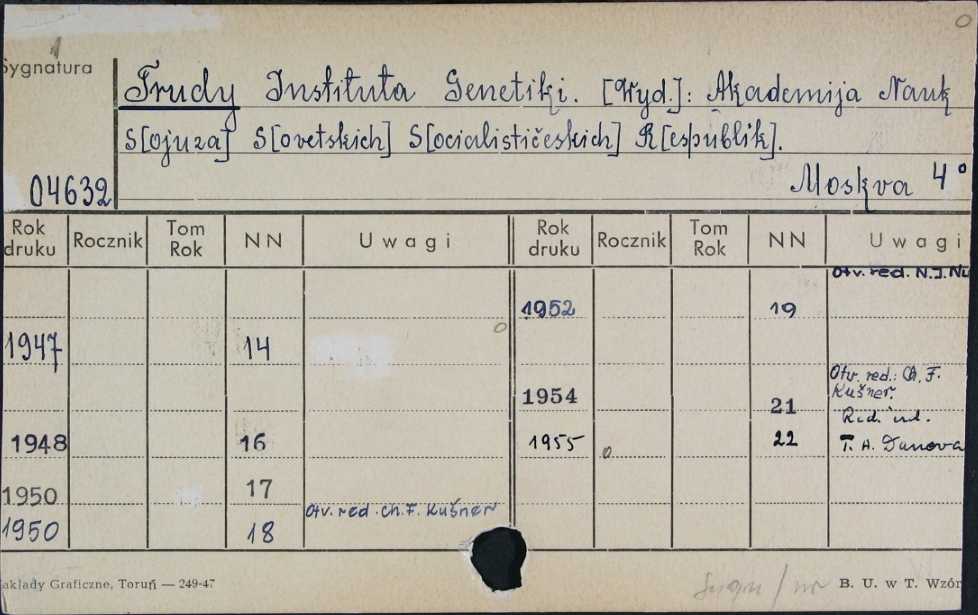 Sygnatura
Trudy Instituta Genetiki. [Wyd.]: Akademija Nauk
S[ojuza] S[ovetskich] S[ocialističeskich] R[espublik].
04632 Moskva 4°
Rok druku Rocznik Tom Rok NN Uwagi Rok druku Rocznik Tom Rok NN Uwagi
Otv. red. N.I. Nu
1952 19
1947 14
Otv. red.: Ch. F.
Kušner.
1954 21
Red.
1948 16 1955 22 T. A. Danova
1950 17
Otv. red. Ch. F. Kušner
1950 18
akłady Graficzne, Toruń — 249-47 B. U. w T. Wzór